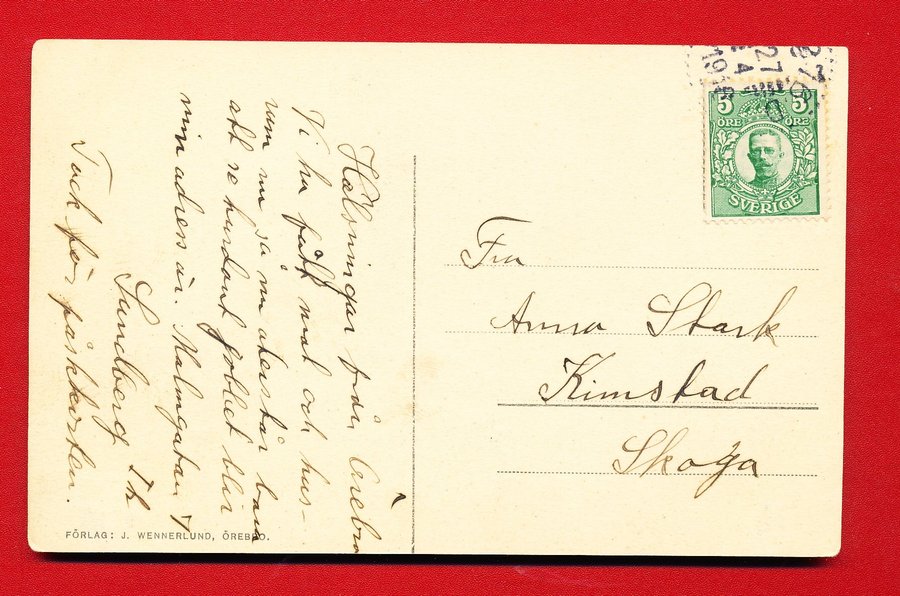 Hälsningar från Örebro
Vi ha fått mat och hus-
rum nu så nu återstår bara
att se hurudant jobbet blir
min adress är. Malmgatan 7
Sundberg
Tack för påskkorten.
FÖRLAG: J. WENNERLUND, ÖREBRO.
27 4
5 5
ÖRE ÖRE
SVERIGE
Fru
Anna Stark
Kimstad
Skoga